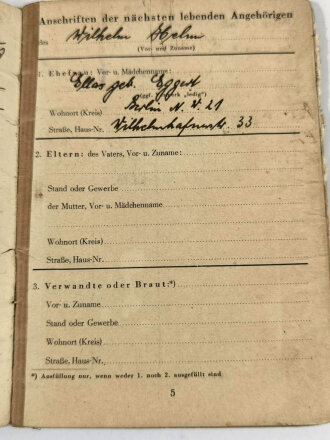 Anschriften der nächsten lebenden Angehörigen
des Wilhelm
(Vor- und Zuname)
1. Ehefrau: Vor- u. Mädchenname:
geb. Eggert
(ggf. Vermerk „ledig“)
Wohnort (Kreis) Berlin N. W. 21
Straße, Haus-Nr. Wilhelmshafenerstr. 33
2. Eltern: des Vaters, Vor- u. Zuname:
Stand oder Gewerbe
der Mutter, Vor- u. Mädchenname
Wohnort (Kreis)
Straße, Haus-Nr.
3. Verwandte oder Braut:*)
Vor- u. Zuname
Stand oder Gewerbe
Wohnort (Kreis)
Straße, Haus-Nr.
*) Ausfüllung nur, wenn weder 1. noch 2. ausgefüllt sind.
5